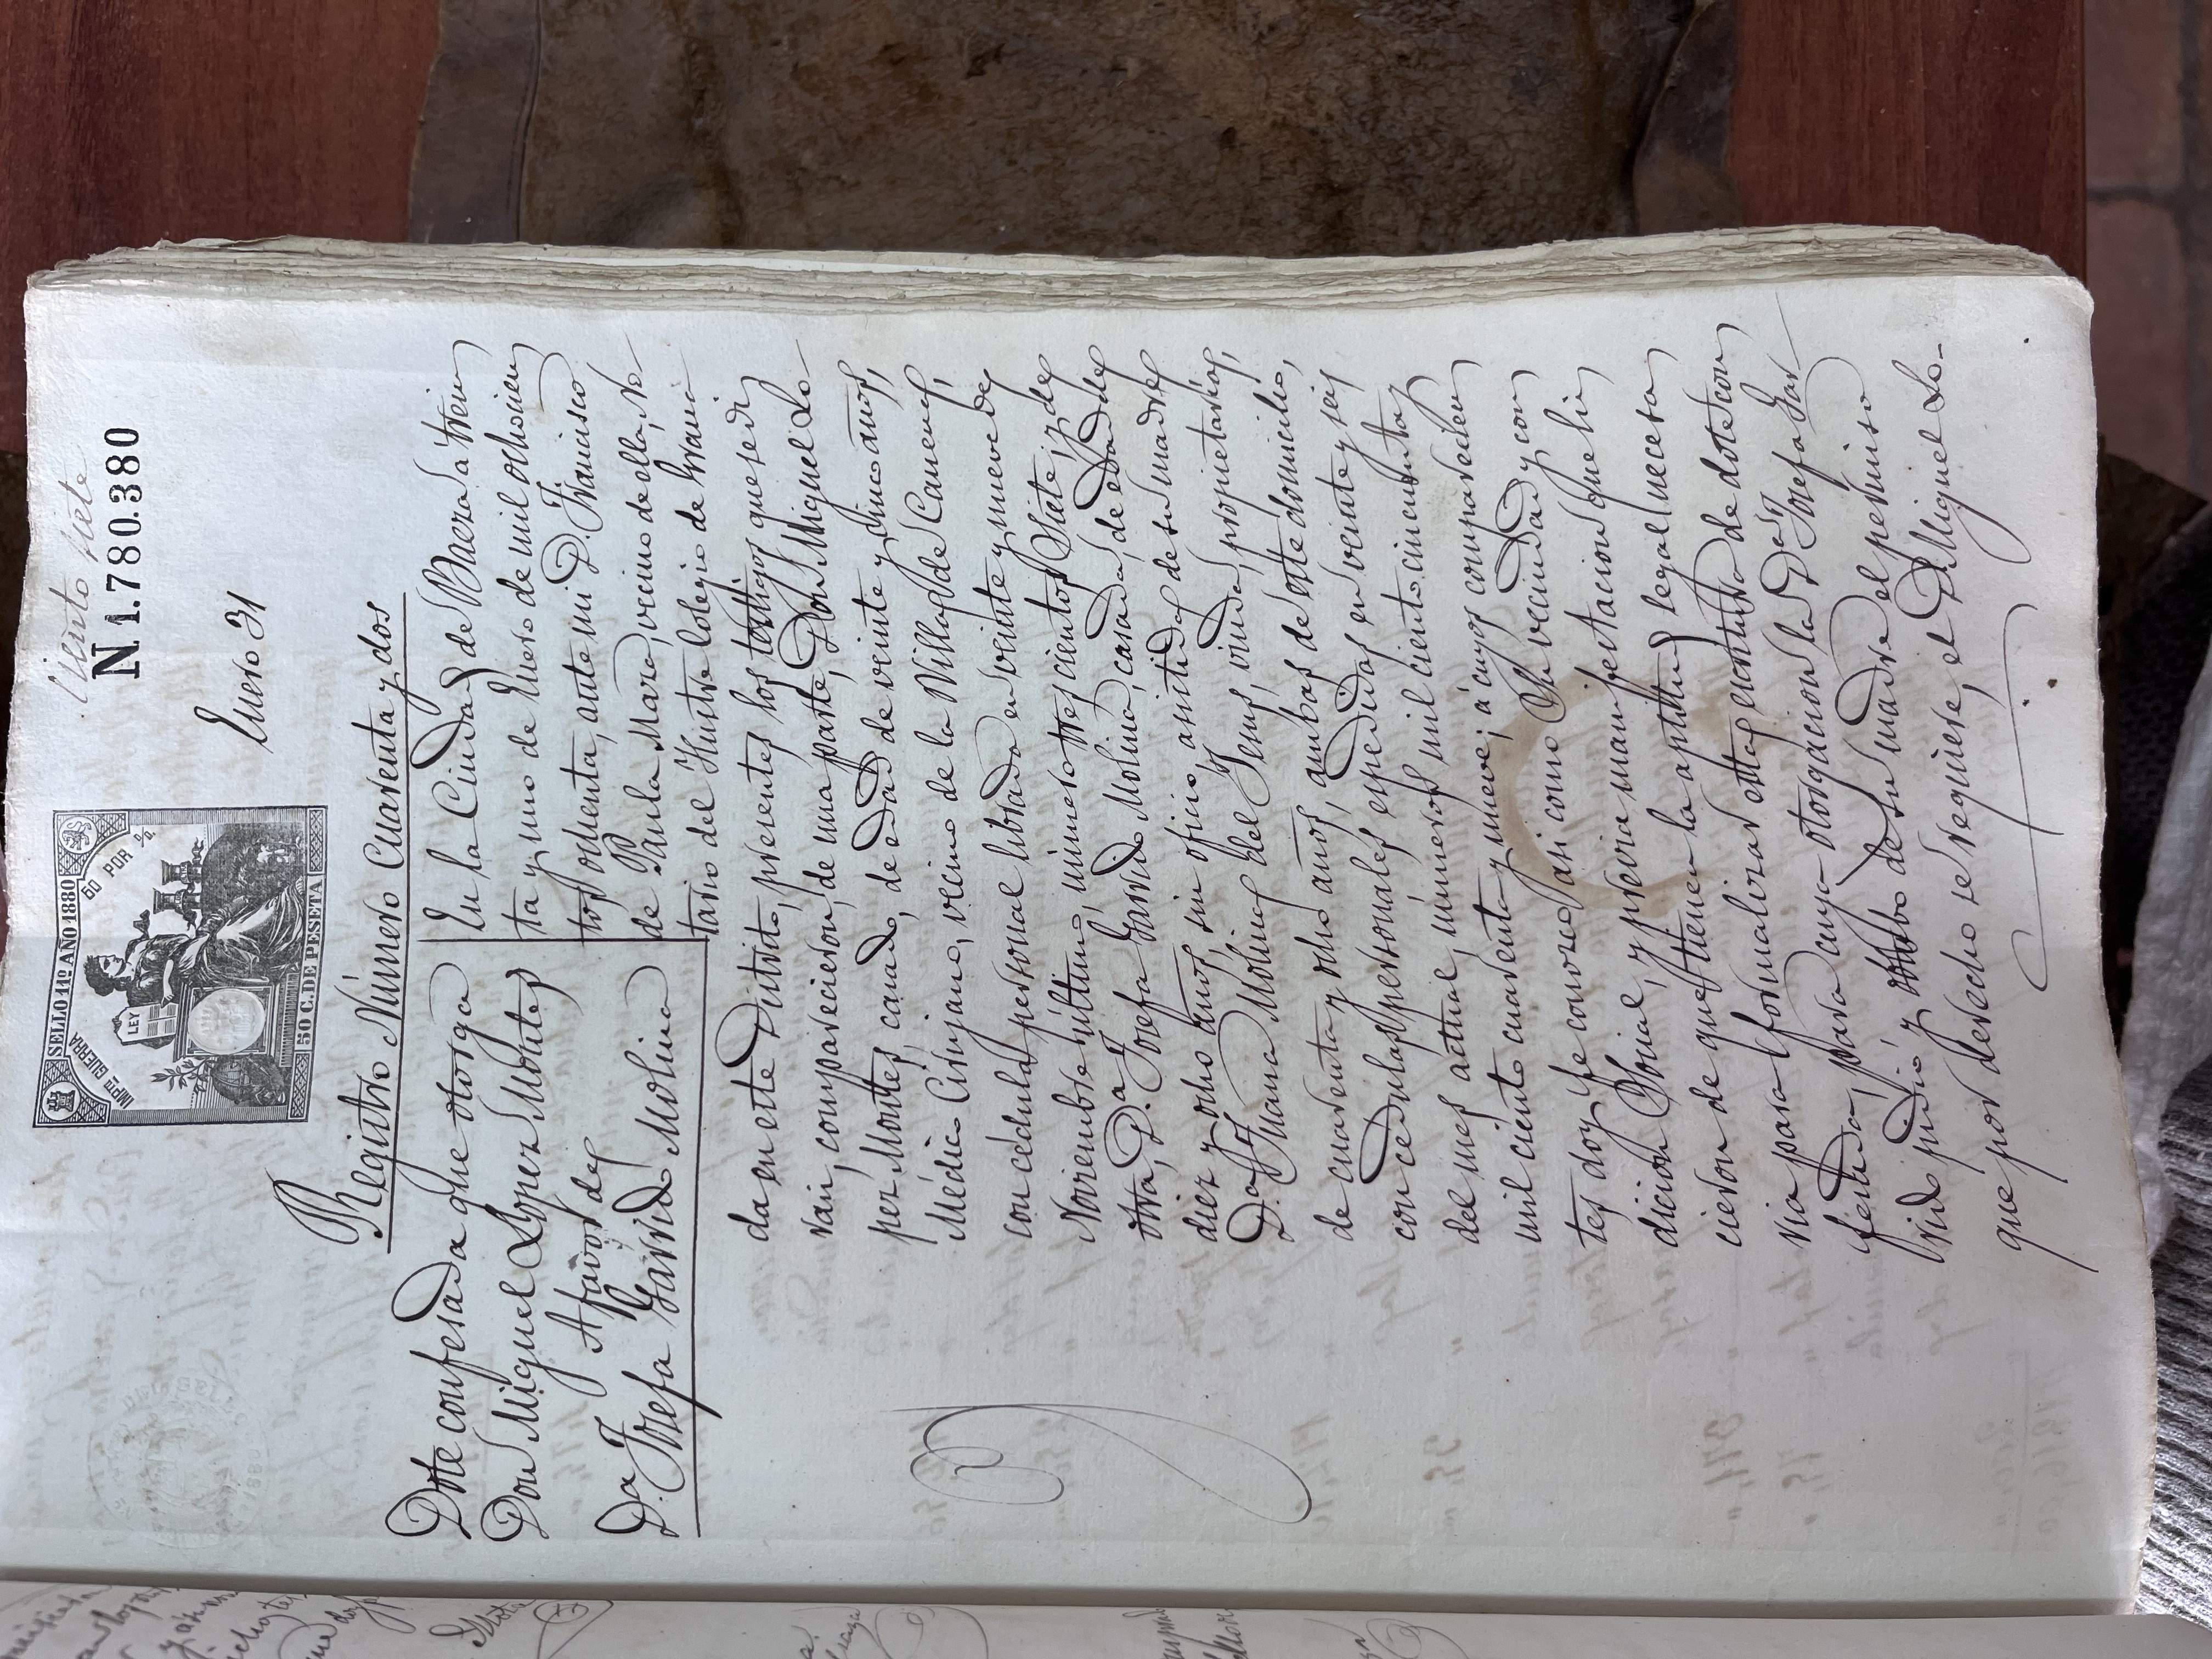 Ciento siete
N 1.780.380
SELLO 11º AÑO 1880
IMPTO GUERRA
50 POR %
LEY
50 C. DE PESETA
Enero 31
Registro Número Cuarenta y dos
Dote confesada que otorga
Don Miguel Lopez Montes
A favor de
D.ª Josefa Garrido Molina
En la Ciudad de Baeza á trein
ta y uno de Enero de mil ochocien
tos ochenta, ante mi D. Francisco
de Paula Mara, vecino de ella, No
tario del Ilustre Colegio de Grana
da en este Distrito, presentes los testigos que se di
ran, comparecieron, de una parte, Don Miguel Lo-
pez Montes, casado, de edad de veinte y cinco años,
Médico Cirujano, vecino de la Villa de Canena,
con cédula personal librada en veinte y nueve de
Noviembre último, número trescientos siete; y de
otra, D.ª Josefa Garrido Molina, casada, de edad de
diez y ocho años, sin oficio, asistida de su madre
D.ª Juana Molina del Jesus, viuda, propietaria,
de cuarenta y ocho años, ambas de este domicilio,
con cedulas personales espedidas en veinte y seis
del mes actual, números mil ciento cincuenta y
mil ciento cuarenta y nueve; á cuyos comparecien
tes doy fe conozco asi como su vecindad y con
dicion social, y previa manifestacion que hi
cieron de que tienen la aptitud legal necesa
ria para formalizar esta escritura de dote con
fesada, para cuya otorgacion la D.ª Josefa Gar
rido pidió y obtubo de su madre el permiso
que por derecho se requiere, el D. Miguel Lo-